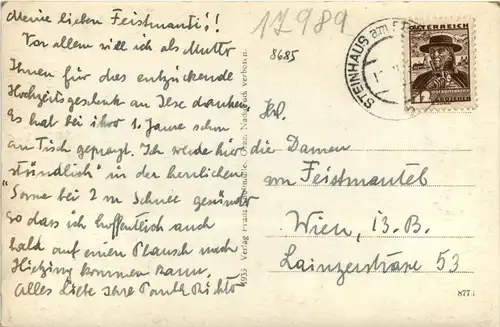 Meine lieben Feistmantl's!
Vor allem will ich als Mutter
Ihnen für das entzückende
Hochzeitsgeschenk an Ilse danken.
Es hat bei ihrer 1. Jause schon
am Tisch geprangt. Ich werde hier
"stündlich" in der herrlichen
Sonne bei 2 m Schnee gesünder
so dass ich hoffentlich auch
bald auf einen Plausch nach
Hietzing kommen kann.
Alles Liebe Ihre
17989
8685
STEINHAUS am
ÖSTERREICH
12
1935 Verlag Franz Graz. Nachdruck verboten.
die Damen
von Feistmantel
Wien, 13. B.
Lainzerstraße 53
877